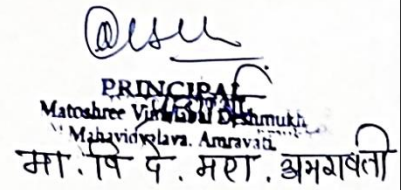 PRINCIPAL
Matoshree Vimalabai Deshmukh
Mahavidyalaya, Amravati
मा. वि दे. महा. अमरावती